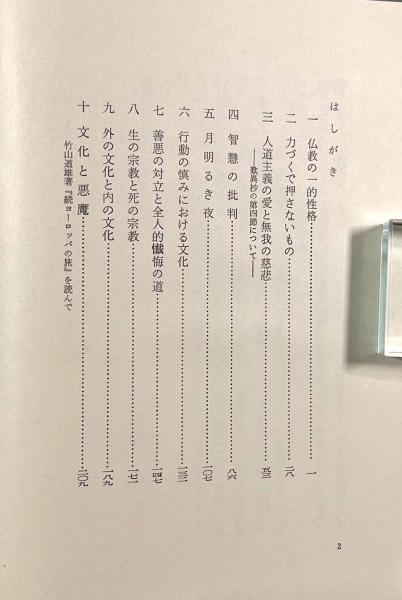 はしがき
一 仏教の一的性格……一
二 力づくで押さないもの……二八
三 人道主義の愛と無我の慈悲……五三
――歎異抄の第四節について――
四 智慧の批判……八六
五 月明るき夜……一〇七
六 行動の慎みにおける文化……一三三
七 善悪の対立と全人的懺悔の道……一四七
八 生の宗教と死の宗教……一七一
九 外の文化と内の文化……一八九
十 文化と悪魔……二〇九
竹山道雄著『続ヨーロッパの旅』を読んで
2